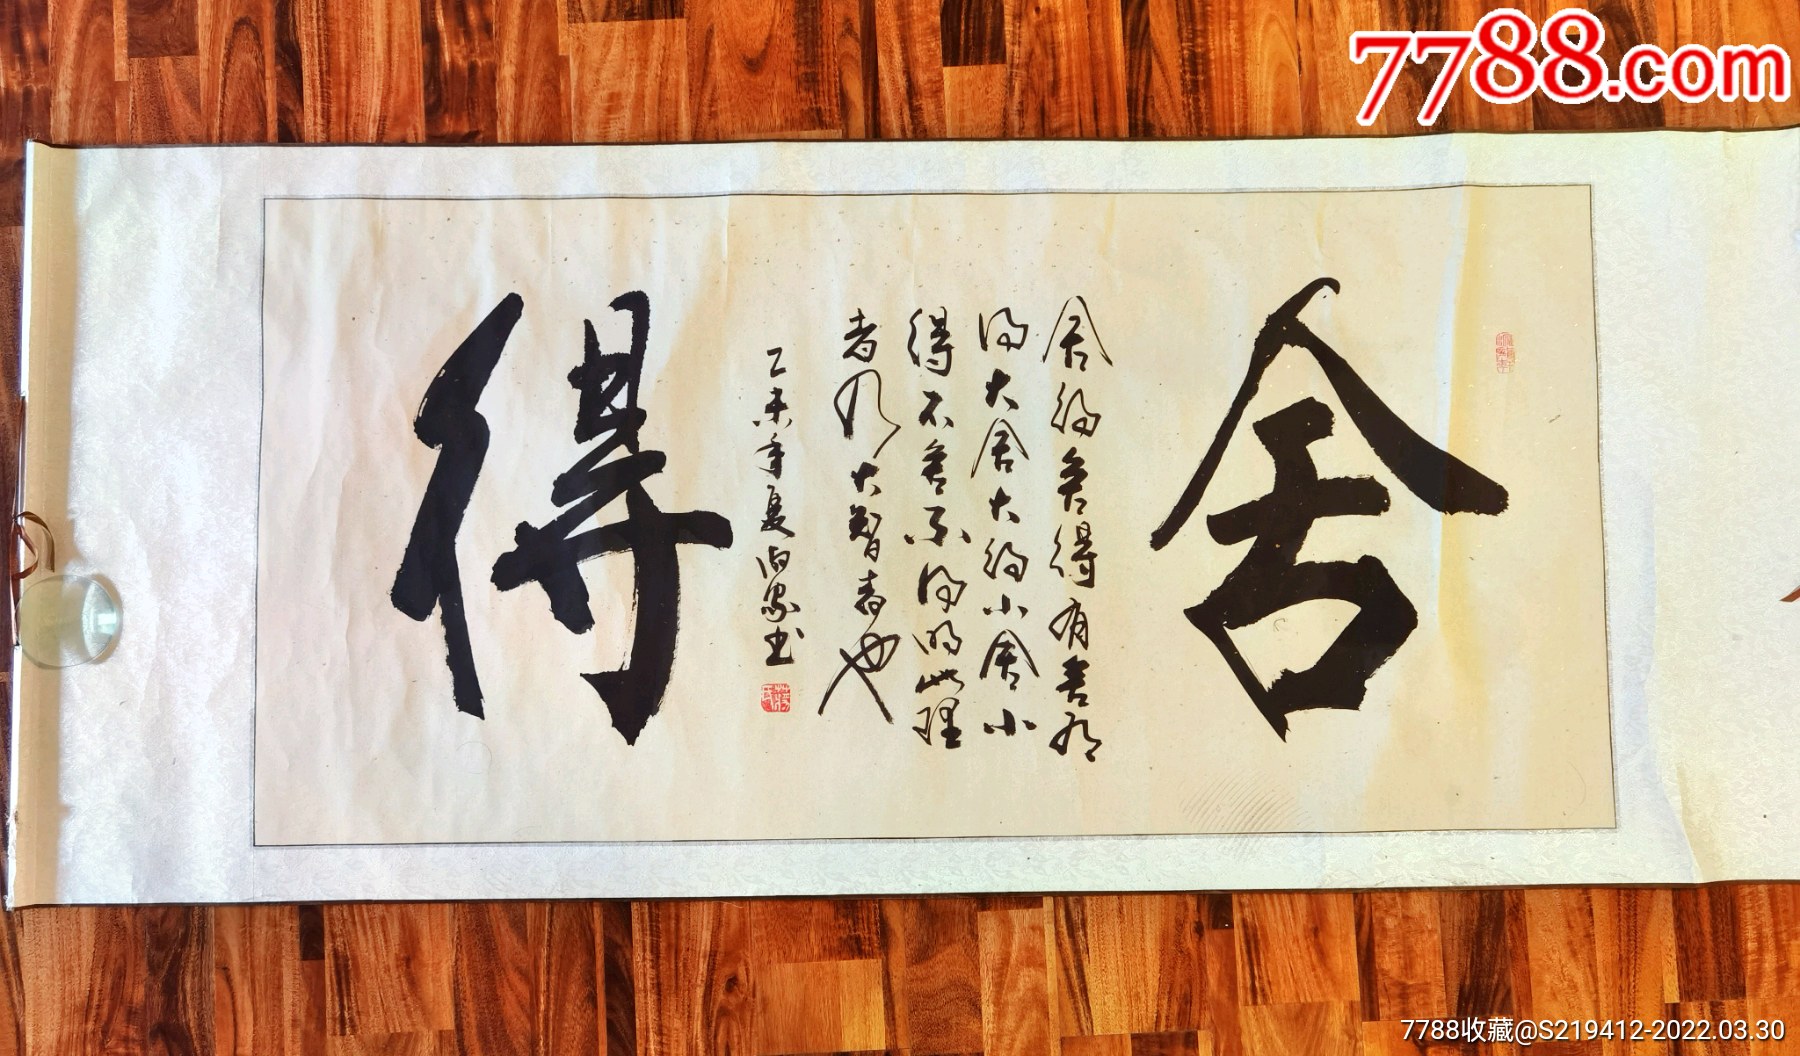 舍
舍得舍得有舍有
得大舍大得小舍小
得不舍不得明此理
者乃大智者也
乙未年夏尚家书
得
7788.com
7788收藏@S219412-2022.03.30